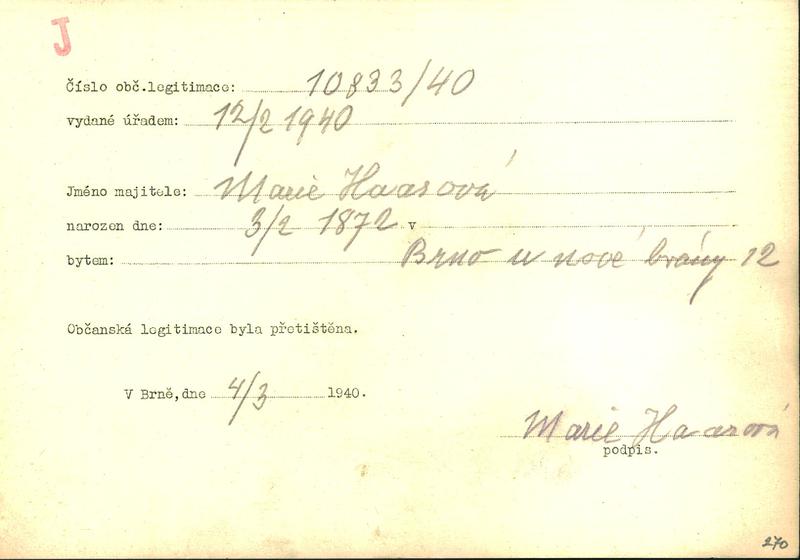 J
Číslo obč.legitimace: 10833/40
vydané úřadem: 12/2 1940
Jméno majitele: Marie Haasová
narozen dne: 3/2 1872 v
bytem: Brno u nové brány 12
Občanská legitimace byla přetištěna.
V Brně, dne 4/3 1940.
Marie Haasová
podpis.
270